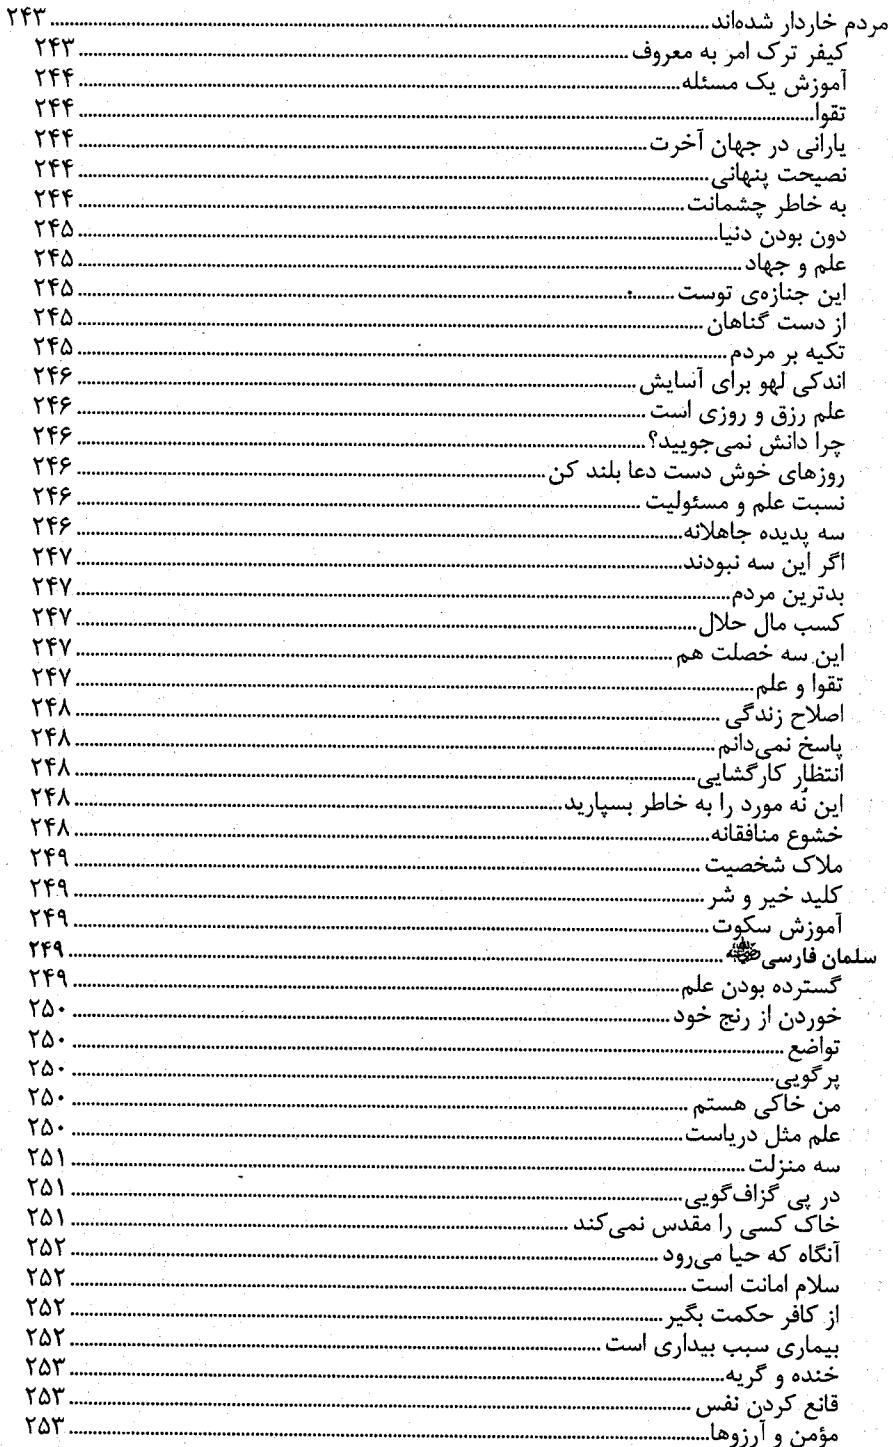 مردم خاردار شده‌اند ۲۴۳
کیفر ترک امر به معروف ۲۴۳
آموزش یک مسئله ۲۴۴
تقوا ۲۴۴
یارانی در جهان آخرت ۲۴۴
نصیحت پنهانی ۲۴۴
به خاطر چشمانت ۲۴۴
دون بودن دنیا ۲۴۵
علم و جهاد ۲۴۵
این جنازه‌ی توست ۲۴۵
از دست گناهان ۲۴۵
تکیه بر مردم ۲۴۵
اندکی لهو برای آسایش ۲۴۶
علم رزق و روزی است ۲۴۶
چرا دانش نمی‌جویید؟ ۲۴۶
روزهای خوش دست دعا بلند کن ۲۴۶
نسبت علم و مسئولیت ۲۴۶
سه پدیده جاهلانه ۲۴۶
اگر این سه نبودند ۲۴۷
بدترین مردم ۲۴۷
کسب مال حلال ۲۴۷
این سه خصلت هم ۲۴۷
تقوا و علم ۲۴۷
اصلاح زندگی ۲۴۸
پاسخ نمی‌دانم ۲۴۸
انتظار کارگشایی ۲۴۸
این نُه مورد را به خاطر بسپارید ۲۴۸
خشوع منافقانه ۲۴۸
ملاک شخصیت ۲۴۹
کلید خیر و شر ۲۴۹
آموزش سکوت ۲۴۹
سلمان فارسی ۲۴۹
گسترده بودن علم ۲۴۹
خوردن از رنج خود ۲۵۰
تواضع ۲۵۰
پرگویی ۲۵۰
من خاکی هستم ۲۵۰
علم مثل دریاست ۲۵۰
سه منزلت ۲۵۱
در پی گزاف‌گویی ۲۵۱
خاک کسی را مقدس نمی‌کند ۲۵۱
آنگاه که حیا می‌رود ۲۵۲
سلام امانت است ۲۵۲
از کافر حکمت بگیر ۲۵۲
بیماری سبب بیداری است ۲۵۲
خنده و گریه ۲۵۳
قانع کردن نفس ۲۵۳
مؤمن و آرزوها ۲۵۳